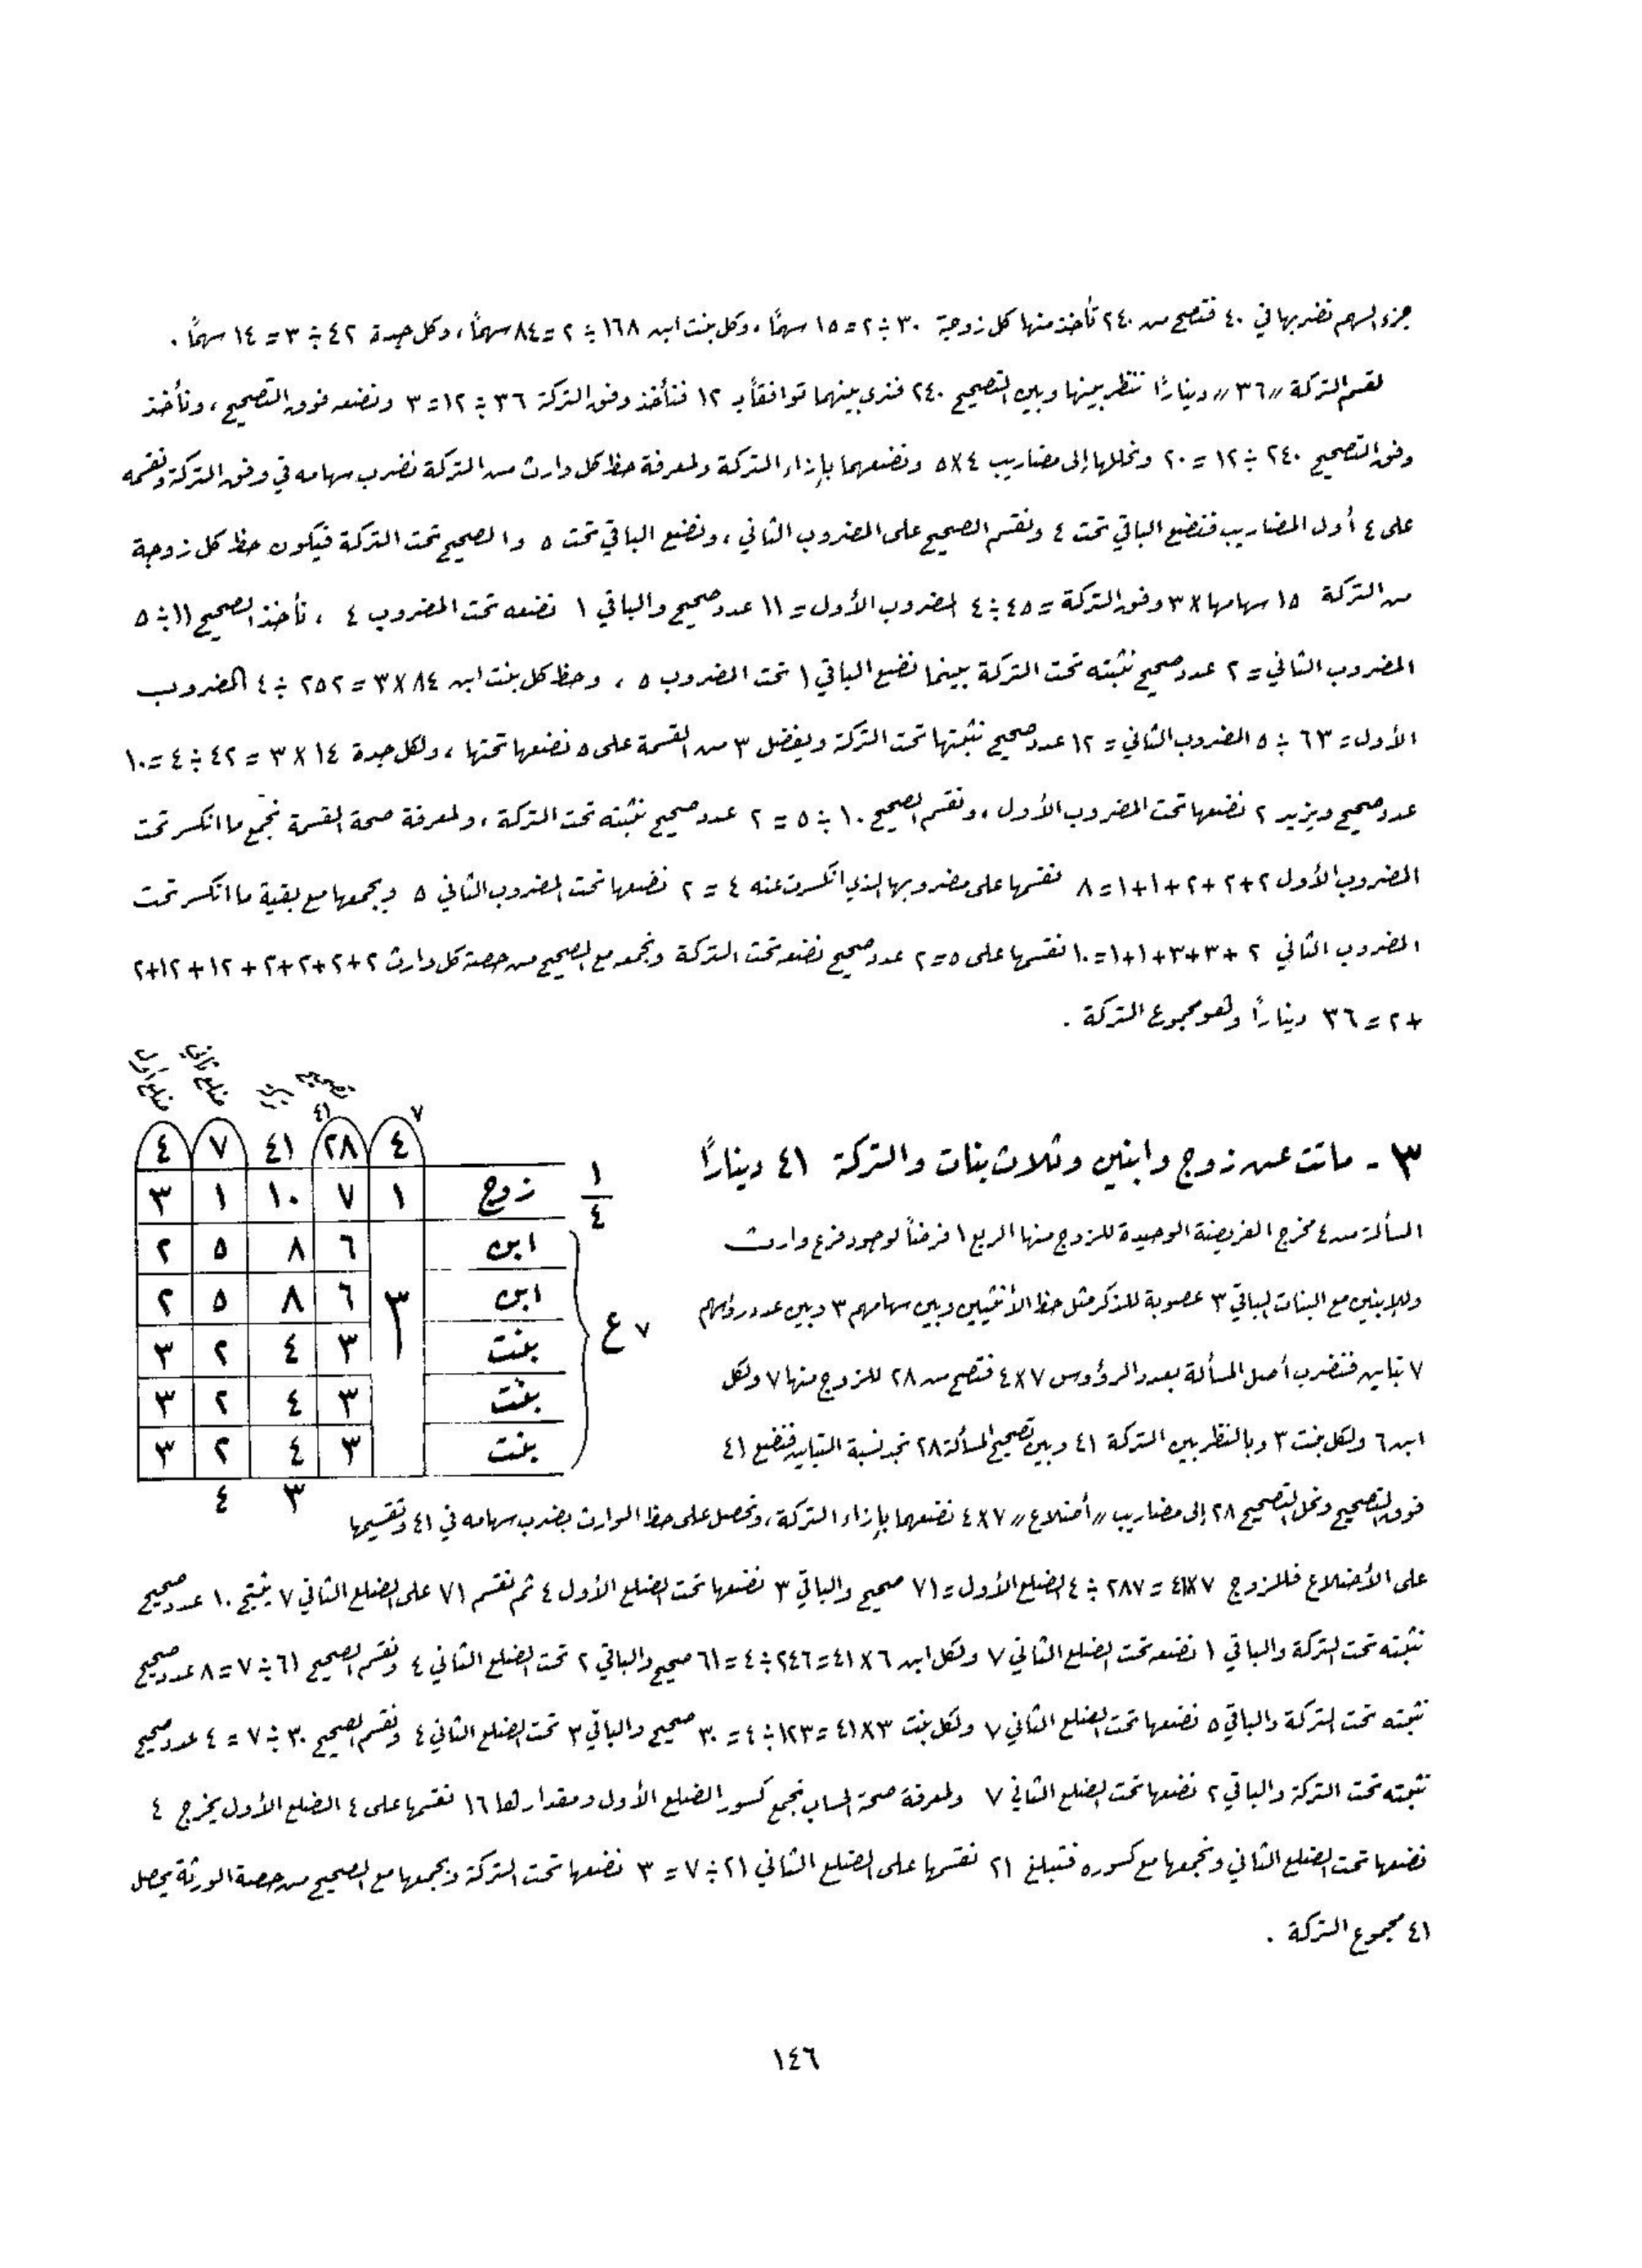 جزء السهم نضربها في ٤٠ فتصح من ٢٤٠ تأخذ منها كل زوجة ٣٠ ÷ ٢ = ١٥ سهمًا ، وكل بنت ابن ١٦٨ ÷ ٢ = ٨٤ سهمًا ، وكل جدة ٤٢ ÷ ٣ = ١٤ سهمًا .
لقسم التركة «٣٦» دينارًا ننظر بينها وبين التصحيح ٢٤٠ فنرى بينهما توافقاً بـ ١٢ فنأخذ وفق التركة ٣٦ ÷ ١٢ = ٣ ونضعه فوق التصحيح ، ونأخذ
وفق التصحيح ٢٤٠ ÷ ١٢ = ٢٠ ونحللها إلى مضاريب ٤ × ٥ ونضعهما بإزاء التركة ولمعرفة حظ كل وارث من التركة نضرب سهامه في وفق التركة ونقسمه
على ٤ أول المضاريب فنضع الباقي تحت ٤ ونقسم الصحيح على المضروب الثاني ، ونضع الباقي تحت ٥ والصحيح تحت التركة فيكون حظ كل زوجة
من التركة ١٥ سهامها × ٣ وفق التركة = ٤٥ ÷ ٤ المضروب الأول = ١١ عدد صحيح والباقي ١ نضعه تحت المضروب ٤ ، نأخذ الصحيح ١١ ÷ ٥
المضروب الثاني = ٢ عدد صحيح نثبته تحت التركة بينما نضع الباقي ١ تحت المضروب ٥ ، وحظ كل بنت ابن ٨٤ × ٣ = ٢٥٢ ÷ ٤ المضروب
الأول = ٦٣ ÷ ٥ المضروب الثاني = ١٢ عدد صحيح نثبتها تحت التركة ويفضل ٣ من القسمة على ٥ نضعها تحتها ، ولكل جدة ١٤ × ٣ = ٤٢ ÷ ٤ = ١٠
عدد صحيح ويزيد ٢ نضعها تحت المضروب الأول ، ونقسم الصحيح ١٠ ÷ ٥ = ٢ عدد صحيح نثبته تحت التركة ، ولمعرفة صحة القسمة نجمع ما انكسر تحت
المضروب الأول ٢+٢+٢+١+١ = ٨ نقسمها على مضروبها الذي انكسرت عنه ٤ = ٢ نضعها تحت المضروب الثاني ٥ ونجمعها مع بقية ما انكسر تحت
المضروب الثاني ٢+٣+٣+١+١ = ١٠ نقسمها على ٥ = ٢ عدد صحيح نضعه تحت التركة ونجمعه مع الصحيح من حصة كل وارث ٢+٢+٢+٢+١٢+١٢+٢
+٢ = ٣٦ دينارًا وهو مجموع التركة .
٣ - ماتت عن زوج وابنين وثلاث بنات والتركة ٤١ دينارًا
المسألة من ٤ مخرج الفريضة الوحيدة للزوج منها الربع ١ فرضاً لوجود فرع وارث
وللإبنين مع البنات الباقي ٣ عصوبة للذكر مثل حظ الأنثيين وبين سهامهم ٣ وبين عدد رؤسهم
٧ تباين فنضرب أصل المسألة بعدد الرؤوس ٧ × ٤ فتصح من ٢٨ للزوج منها ٧ ولكل
ابن ٦ ولكل بنت ٣ وبالنظر بين التركة ٤١ وبين تصحيح المسألة ٢٨ نجد نسبة التباين فنضع ٤١
تصحيح تركة ضلع ثاني ضلع أول
٧ ٤١
٤ ٢٨ ٤١ ٧ ٤
١/٤ زوج ١ ٧ ١٠ ١ ٣
ابن ٦ ٨ ٥ ٢
ابن ٣ ٦ ٨ ٥ ٢
٧ ع بنت ٣ ٤ ٢ ٣
بنت ٣ ٤ ٢ ٣
بنت ٣ ٤ ٢ ٣
٣ ٤
فوق التصحيح ونحل التصحيح ٢٨ إلى مضاريب «أضلاع» ٧ × ٤ نضعهما بإزاء التركة ، ونحصل على حظ الوارث بضرب سهامه في ٤١ وتقسيمها
على الأضلاع فللزوج ٧ × ٤١ = ٢٨٧ ÷ ٤ الضلع الأول = ٧١ صحيح والباقي ٣ نضعها تحت الضلع الأول ٤ ثم نقسم ٧١ على الضلع الثاني ٧ ينتج ١٠ عدد صحيح
نثبته تحت التركة والباقي ١ نضعه تحت الضلع الثاني ٧ ولكل ابن ٦ × ٤١ = ٢٤٦ ÷ ٤ = ٦١ صحيح والباقي ٢ تحت الضلع الثاني ٤ ونقسم الصحيح ٦١ ÷ ٧ = ٨ عدد صحيح
نثبته تحت التركة والباقي ٥ نضعها تحت الضلع الثاني ٧ ولكل بنت ٣ × ٤١ = ١٢٣ ÷ ٤ = ٣٠ صحيح والباقي ٣ تحت الضلع الثاني ٤ ونقسم الصحيح ٣٠ ÷ ٧ = ٤ عدد صحيح
نثبته تحت التركة والباقي ٢ نضعها تحت الضلع الثاني ٧ ولمعرفة صحة الحساب نجمع كسور الضلع الأول ومقدارها ١٦ نقسمها على ٤ الضلع الأول يخرج ٤
نضعها تحت الضلع الثاني ونجمعها مع كسوره فتبلغ ٢١ نقسمها على الضلع الثاني ٢١ ÷ ٧ = ٣ نضعها تحت التركة ونجمعها مع الصحيح من حصة الورثة يحصل
٤١ مجموع التركة .
١٤٦